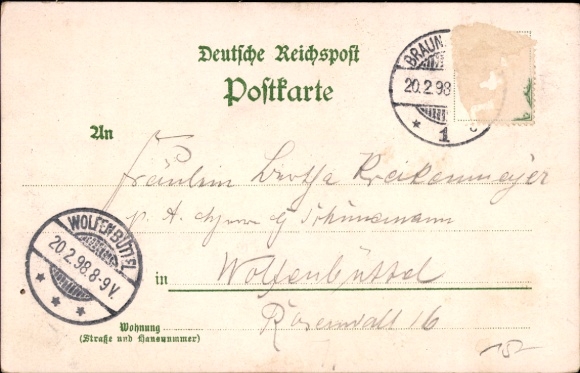 Deutsche Reichspost
Postkarte
BRAUN
20.2.98
1
An
Fräulein Bertha Kreikenmeyer
p. A. G Schünemann
WOLFENBÜTTEL
20.2.98.8-9V.
in Wolfenbüttel
Rosenwall 16
Wohnung
(Straße und Hausnummer)